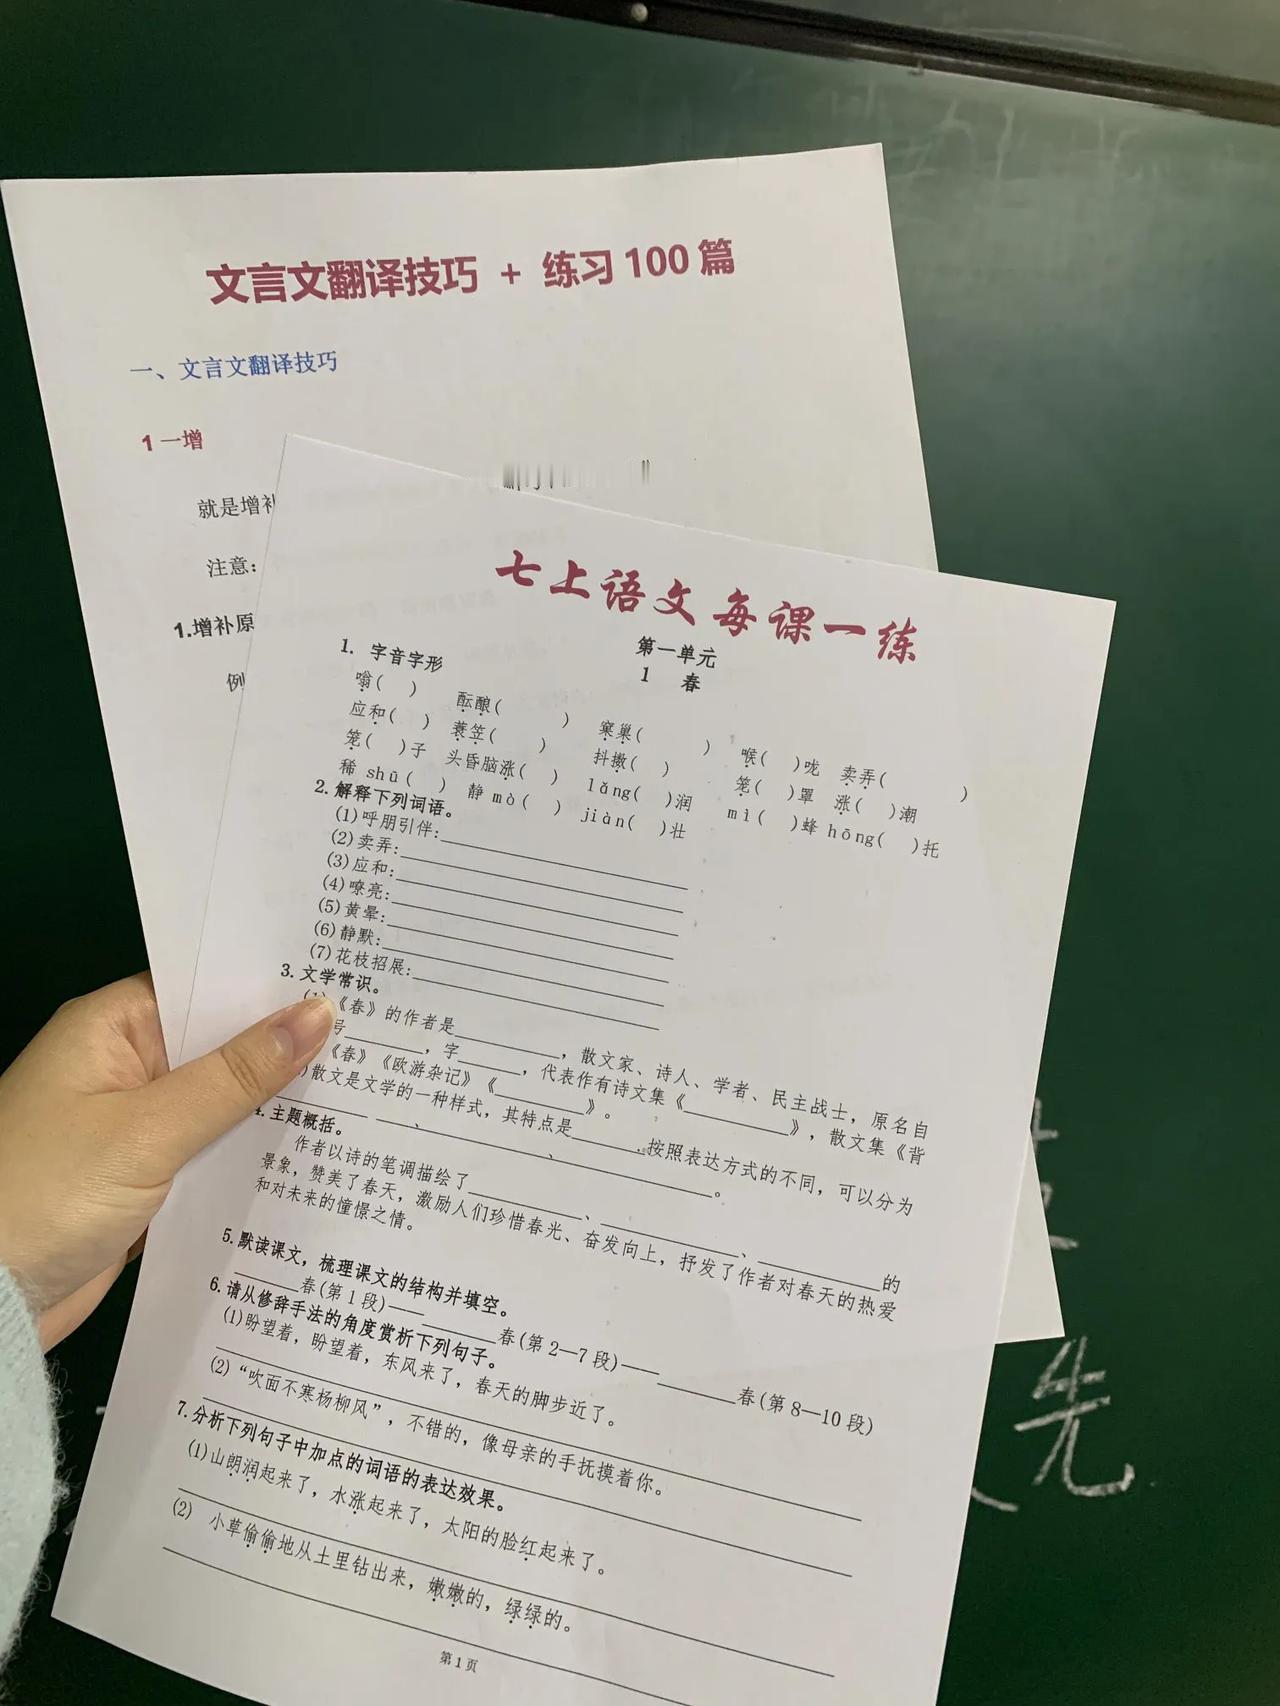 文言文翻译技巧 + 练习 100 篇
一、文言文翻译技巧
1 一增
就是增补
注意：
1.增补原
例
七上语文每课一练
第一单元
1 春
1. 字音字形
嗡( ) 酝酿( ) 窠巢( ) 喉( )咙 卖弄( )
应和( ) 蓑笠( ) 抖擞( ) 笼( )罩 涨( )潮
笼( )子 头昏脑涨( ) lǎng( )润 mì( )蜂 hōng( )托
稀 shū( ) 静 mò( ) jiàn( )壮
2. 解释下列词语。
(1)呼朋引伴:____________
(2)卖弄:____________
(3)应和:____________
(4)嘹亮:____________
(5)黄晕:____________
(6)静默:____________
(7)花枝招展:____________
3. 文学常识。
《春》的作者是________，散文家、诗人、学者、民主战士，原名自
号______，字______，代表作有诗文集《________》，散文集《背
《春》《欧游杂记》《________》。
散文是文学的一种样式，其特点是______,按照表达方式的不同，可以分为
________、________、________。
4. 主题概括。
作者以诗的笔调描绘了________、________、________的
景象，赞美了春天，激励人们珍惜春光、奋发向上，抒发了作者对春天的热爱
和对未来的憧憬之情。
5. 默读课文，梳理课文的结构并填空。
______春(第 1 段)——______春(第 2—7 段)——______春(第 8—10 段)
6. 请从修辞手法的角度赏析下列句子。
(1)盼望着，盼望着，东风来了，春天的脚步近了。
(2)“吹面不寒杨柳风”，不错的，像母亲的手抚摸着你。
7. 分析下列句子中加点的词语的表达效果。
(1)山朗润起来了，水涨起来了，太阳的脸红起来了。
(2) 小草偷偷地从土里钻出来，嫩嫩的，绿绿的。
第 1 页
先